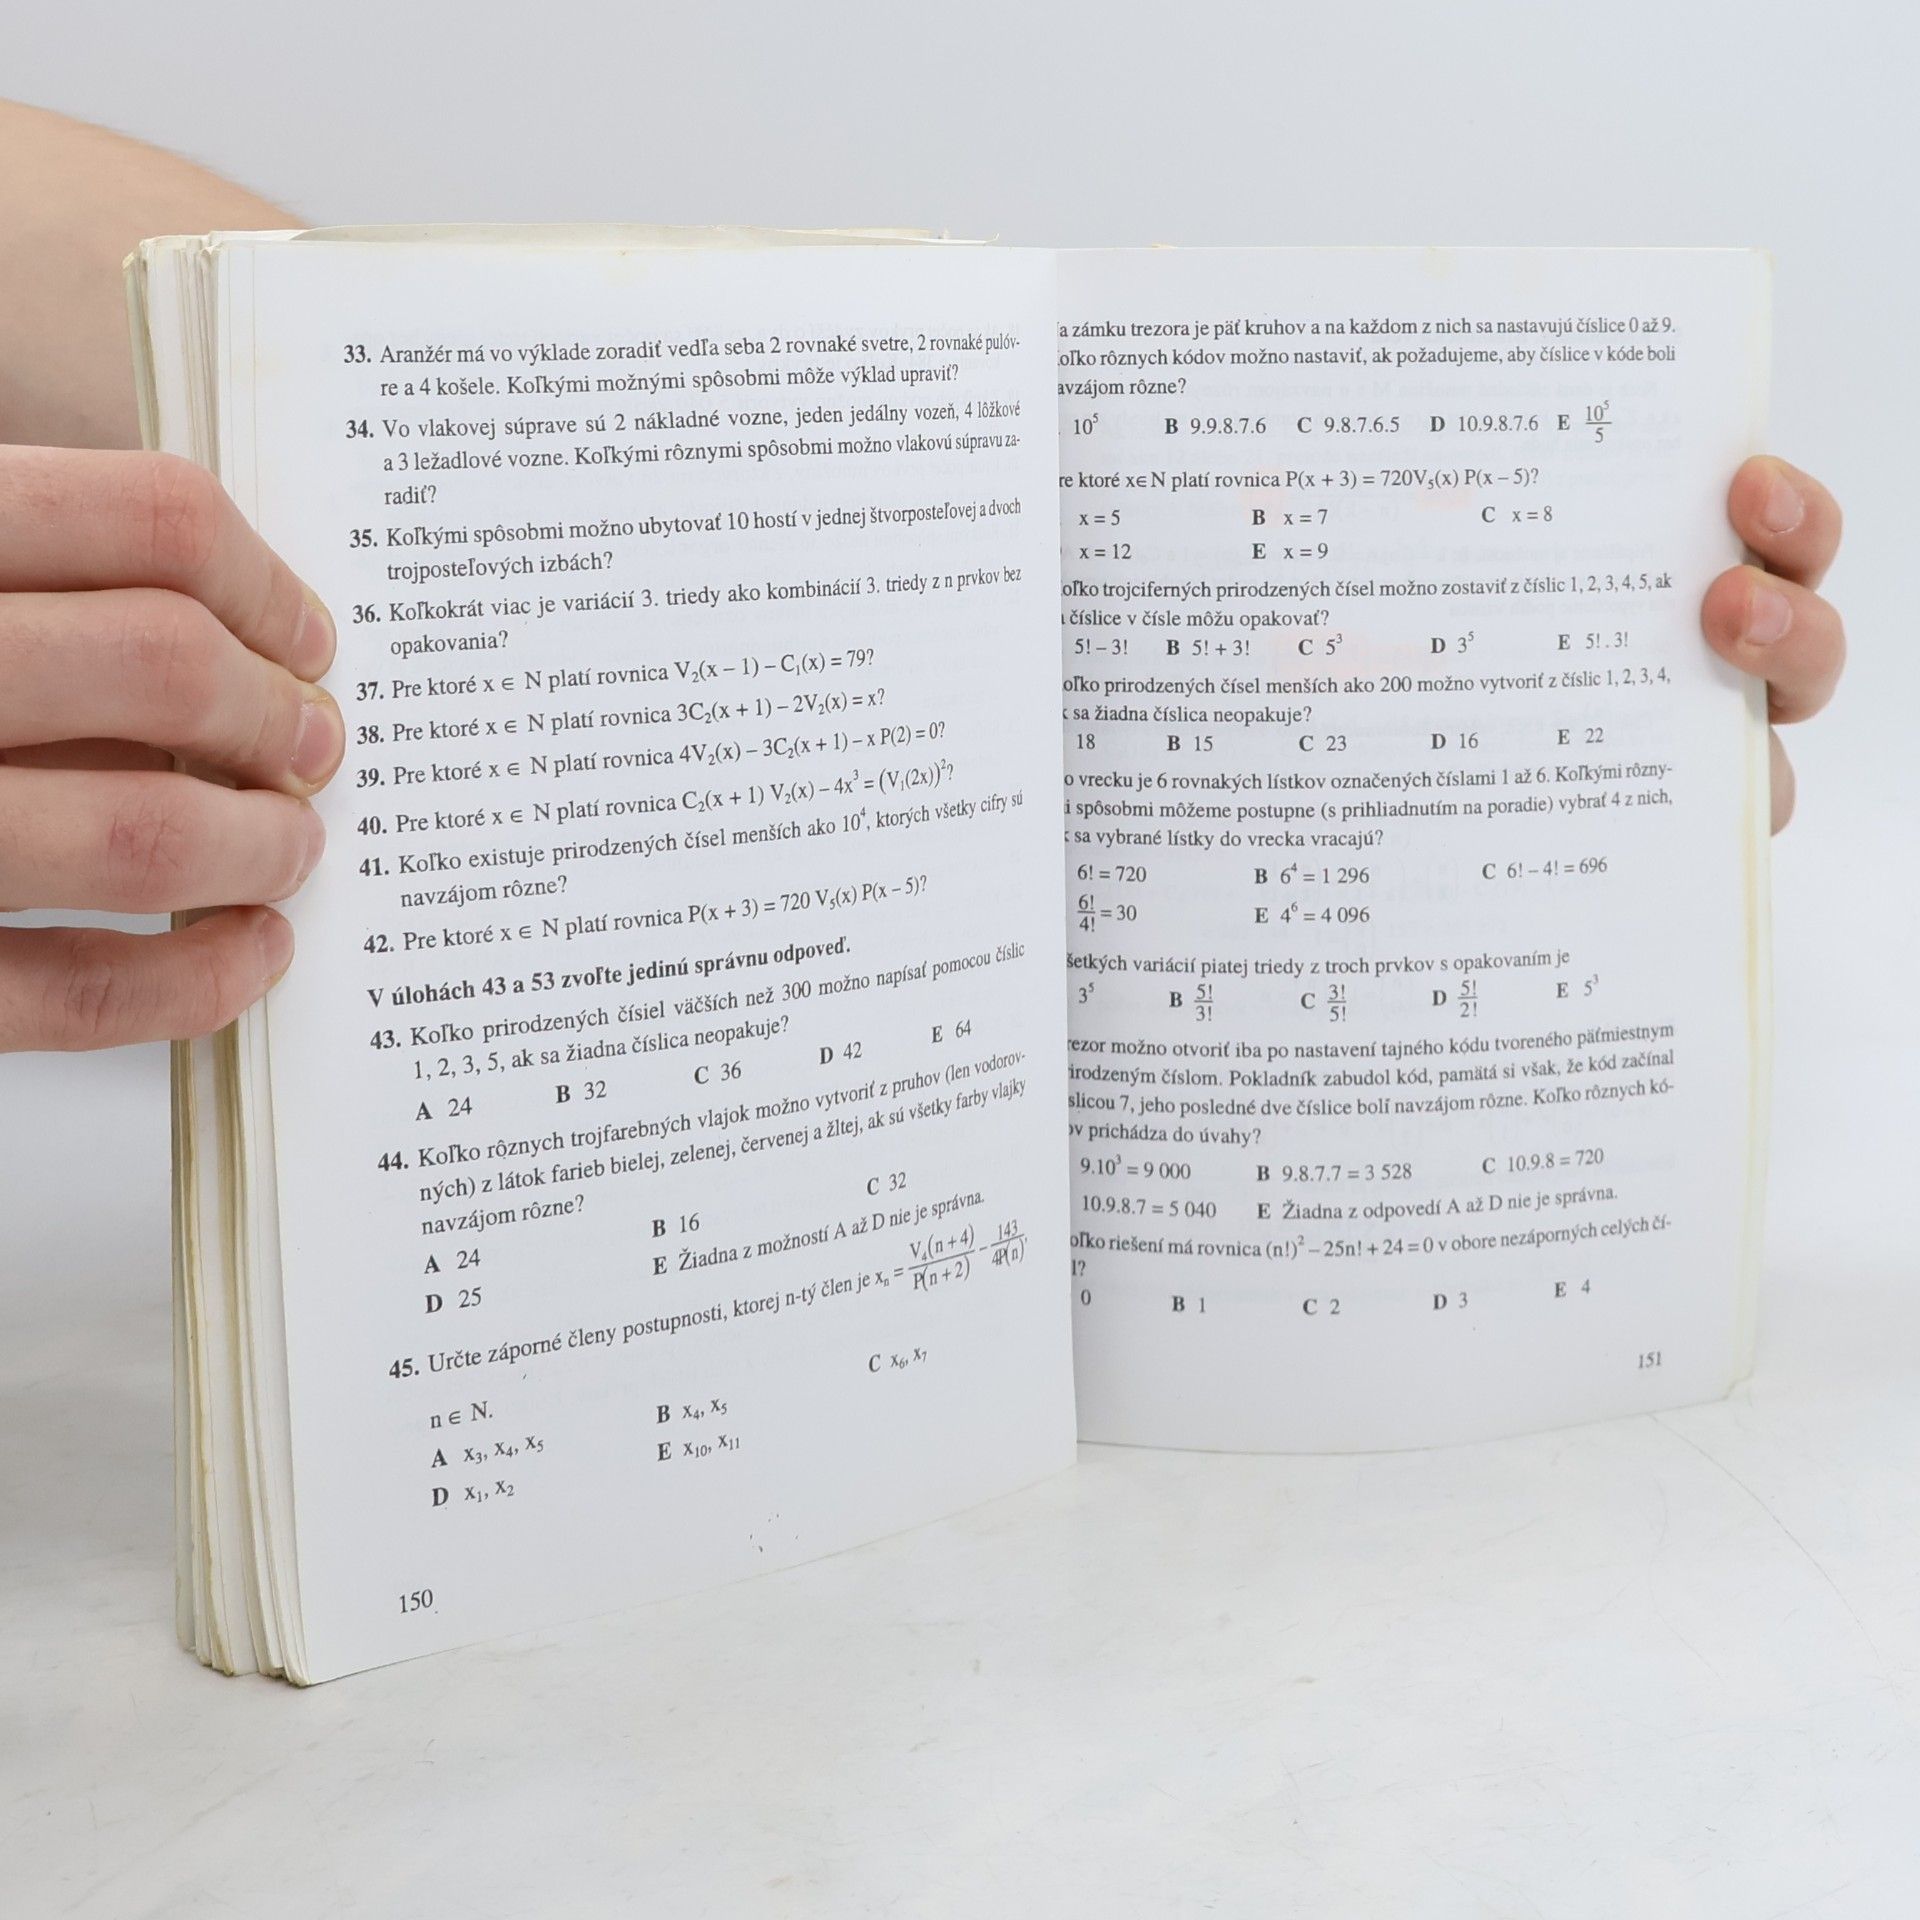 33. Aranžér má vo výklade zoradiť vedľa seba 2 rovnaké svetre, 2 rovnaké pulóv-
re a 4 košele. Koľkými možnými spôsobmi môže výklad upraviť?
34. Vo vlakovej súprave sú 2 nákladné vozne, jeden jedálny vozeň, 4 lôžkové
a 3 ležadlové vozne. Koľkými rôznymi spôsobmi možno vlakovú súpravu za-
radiť?
35. Koľkými spôsobmi možno ubytovať 10 hostí v jednej štvorposteľovej a dvoch
trojposteľových izbách?
36. Koľkokrát viac je variácií 3. triedy ako kombinácií 3. triedy z n prvkov bez
opakovania?
37. Pre ktoré x ∈ N platí rovnica V₂(x − 1) − C₁(x) = 79?
38. Pre ktoré x ∈ N platí rovnica 3C₂(x + 1) − 2V₂(x) = x?
39. Pre ktoré x ∈ N platí rovnica 4V₂(x) − 3C₂(x + 1) − x P(2) = 0?
40. Pre ktoré x ∈ N platí rovnica C₂(x + 1) V₂(x) − 4x³ = (V₁(2x))²?
41. Koľko existuje prirodzených čísel menších ako 10⁴, ktorých všetky cifry sú
navzájom rôzne?
42. Pre ktoré x ∈ N platí rovnica P(x + 3) = 720 V₅(x) P(x − 5)?
V úlohách 43 a 53 zvoľte jedinú správnu odpoveď.
43. Koľko prirodzených čísiel väčších než 300 možno napísať pomocou číslic
1, 2, 3, 5, ak sa žiadna číslica neopakuje?
A 24 B 32 C 36 D 42 E 64
44. Koľko rôznych trojfarebných vlajok možno vytvoriť z pruhov (len vodorov-
ných) z látok farieb bielej, zelenej, červenej a žltej, ak sú všetky farby vlajky
navzájom rôzne?
A 24 B 16 C 32
D 25 E Žiadna z možností A až D nie je správna.
45. Určte záporné členy postupnosti, ktorej n-tý člen je xₙ = V₄(n + 4)/P(n + 2) − 143/4P(n),
n ∈ N.
A x₃, x₄, x₅ B x₄, x₅ C x₆, x₇
D x₁, x₂ E x₁₀, x₁₁
150
a zámku trezora je päť kruhov a na každom z nich sa nastavujú číslice 0 až 9.
oľko rôznych kódov možno nastaviť, ak požadujeme, aby číslice v kóde boli
avzájom rôzne?
10⁵ B 9.9.8.7.6 C 9.8.7.6.5 D 10.9.8.7.6 E 10⁵/5
re ktoré x∈N platí rovnica P(x + 3) = 720V₅(x) P(x − 5)?
x = 5 B x = 7 C x = 8
x = 12 E x = 9
oľko trojciferných prirodzených čísel možno zostaviť z číslic 1, 2, 3, 4, 5, ak
číslice v čísle môžu opakovať?
5! − 3! B 5! + 3! C 5³ D 3⁵ E 5! . 3!
oľko prirodzených čísel menších ako 200 možno vytvoriť z číslic 1, 2, 3, 4,
sa žiadna číslica neopakuje?
18 B 15 C 23 D 16 E 22
o vrecku je 6 rovnakých lístkov označených číslami 1 až 6. Koľkými rôzny-
i spôsobmi môžeme postupne (s prihliadnutím na poradie) vybrať 4 z nich,
sa vybrané lístky do vrecka vracajú?
6! = 720 B 6⁴ = 1 296 C 6! − 4! = 696
6!/4! = 30 E 4⁶ = 4 096
šetkých variácií piatej triedy z troch prvkov s opakovaním je
3⁵ B 5!/3! C 3!/5! D 5!/2! E 5³
rezor možno otvoriť iba po nastavení tajného kódu tvoreného päťmiestnym
irodzeným číslom. Pokladník zabudol kód, pamätá si však, že kód začínal
slicou 7, jeho posledné dve číslice bolí navzájom rôzne. Koľko rôznych kó-
ov prichádza do úvahy?
9.10³ = 9 000 B 9.8.7.7 = 3 528 C 10.9.8 = 720
10.9.8.7 = 5 040 E Žiadna z odpovedí A až D nie je správna.
oľko riešení má rovnica (n!)² − 25n! + 24 = 0 v obore nezáporných celých čí-
l?
0 B 1 C 2 D 3 E 4
151